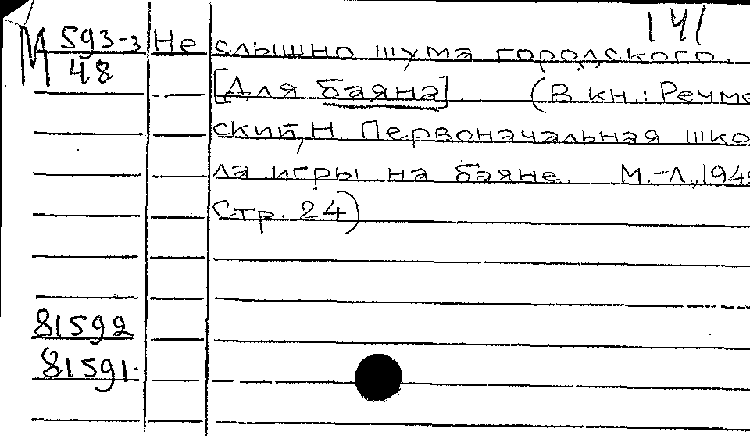 141
М 593-3 Не слышно шума городского.
48 [Для баяна] (В кн.: Речмен
ский, Н. Первоначальная шко
ла игры на баяне. М.-Л., 194
Стр. 24)
81592
81591.